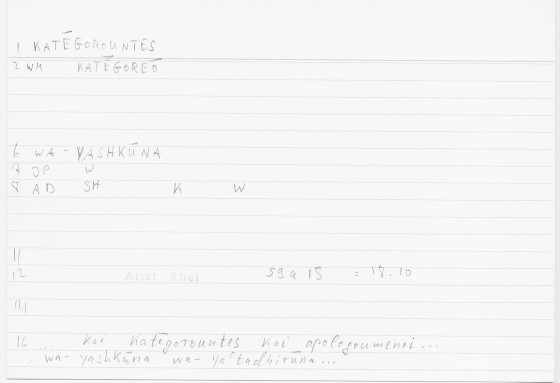 1 KATĒGOROUNTES
2 WM KATĒGOREŌ
6 WA-YASHKŪNA
7 JP W
8 AB SH K W
11
12 Arist Rhet 59a15 = 18.10
14
16 ... kai katēgorountes kai apologoumenoi...
wa-yashkūna wa-yaʿtadhirūna...